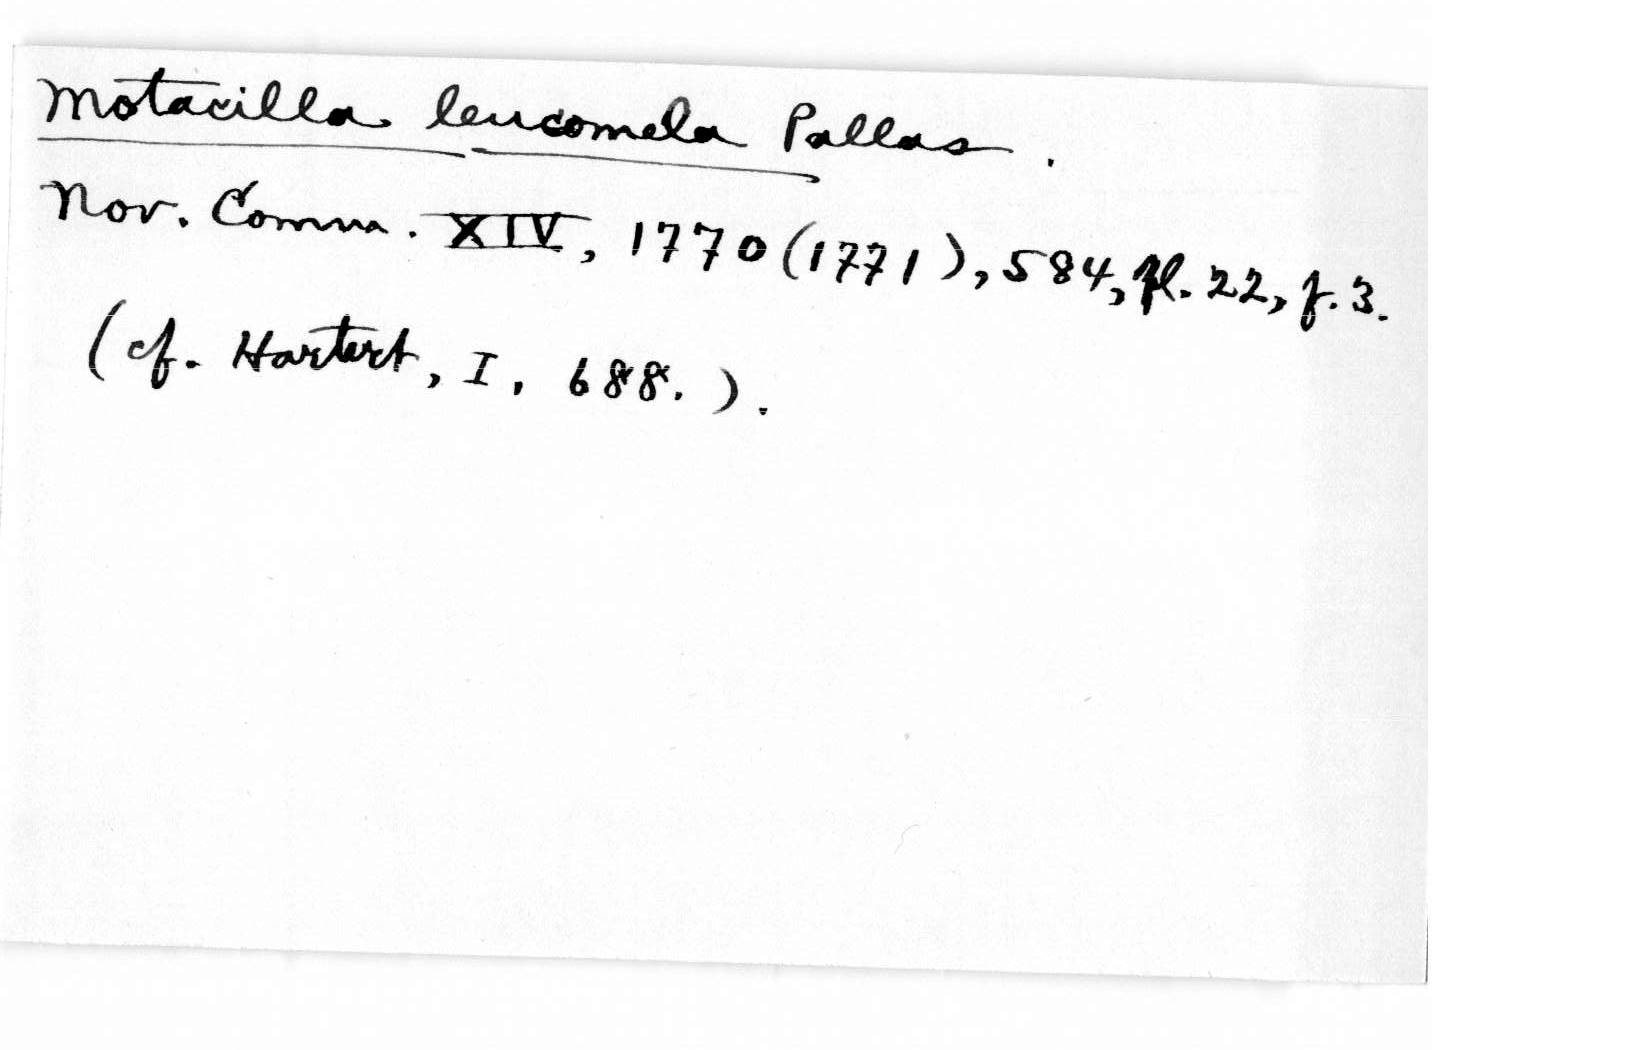 Motacilla leucomela Pallas.
Nov. Comm. XIV, 1770 (1771), 584, pl. 22, f. 3.
(cf. Hartert, I, 688.).